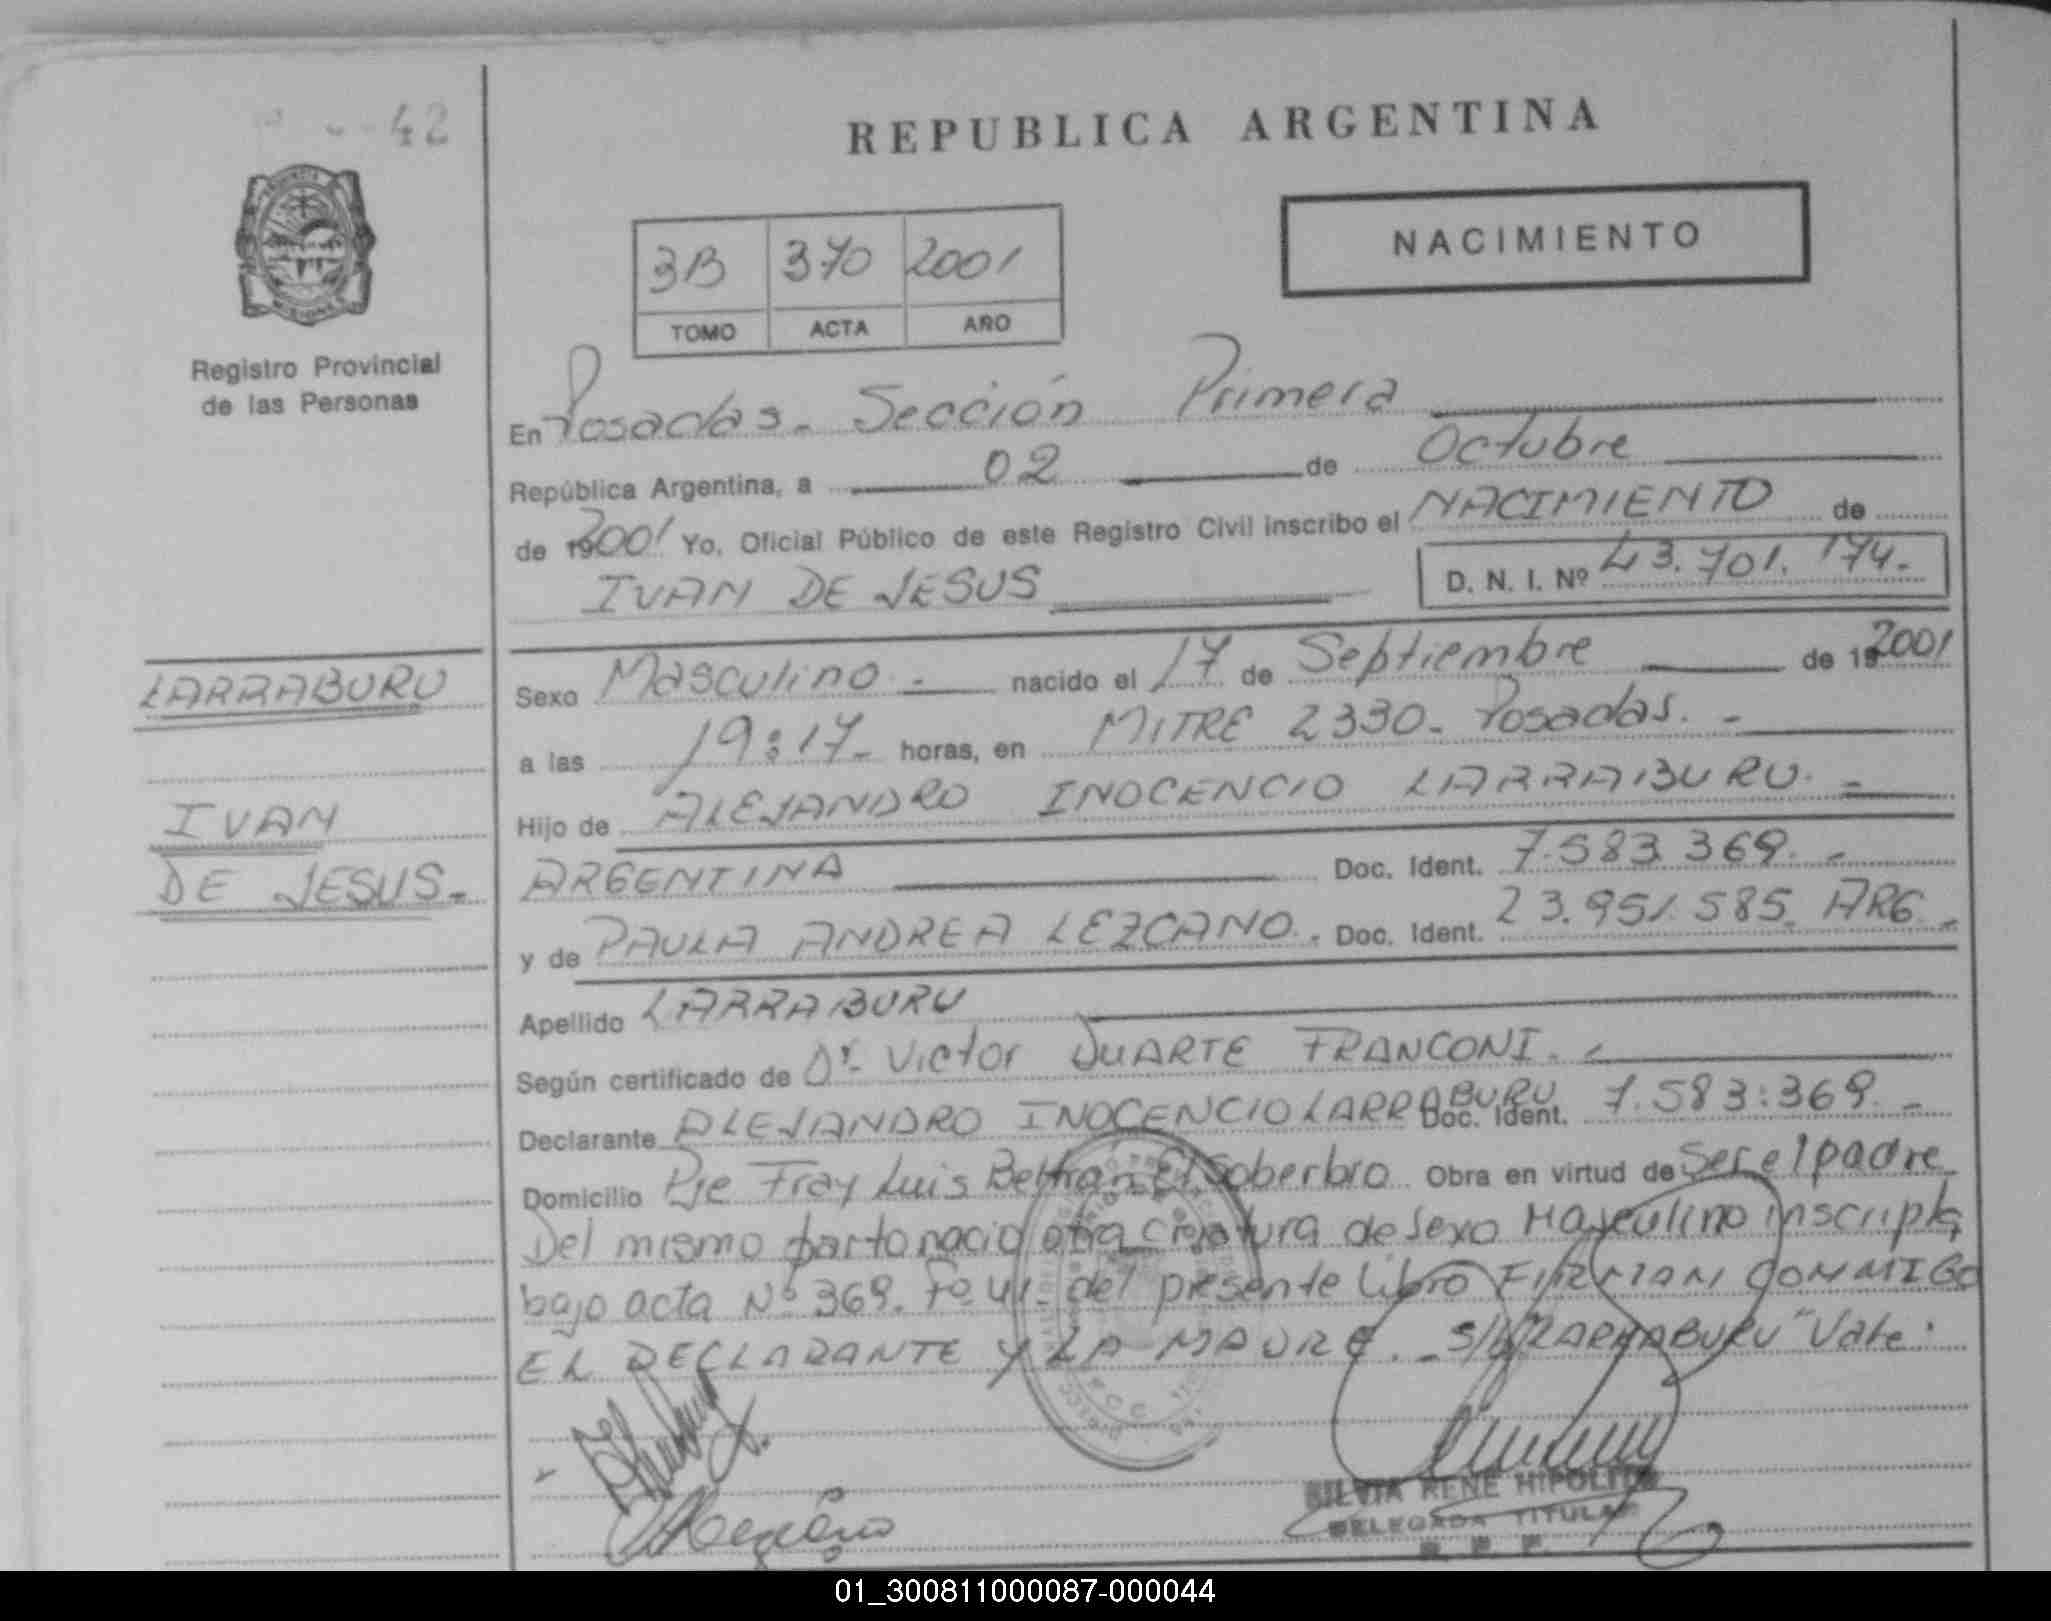 42
REPUBLICA ARGENTINA
NACIMIENTO
3B 370 2001
TOMO ACTA AÑO
Registro Provincial
de las Personas
En Posadas. Sección Primera
República Argentina, a 02 de Octubre
de 2001 Yo. Oficial Público de este Registro Civil inscribo el NACIMIENTO de
IVAN DE JESUS D. N. I. Nº 43.701.174.-
LARRABURU
IVAN
DE JESUS.-
Sexo Masculino.- nacido el 17 de Septiembre de 2001
a las 19:17- horas, en MITRE 2330- Posadas.-
Hijo de ALEJANDRO INOCENCIO LARRABURU.-
ARGENTINA Doc. Ident. 7.583.369.-
y de PAULA ANDREA LEZCANO. Doc. Ident. 23.951.585. ARG.-
Apellido LARRABURU
Según certificado de Dr. Victor DUARTE FRANCONI.-
Declarante ALEJANDRO INOCENCIO LARRABURU Doc. Ident. 7.583:369.-
Domicilio Pje Fray Luis Beltrán El Soberbio. Obra en virtud de Ser el padre
Del mismo parto nació otra criatura de sexo Masculino inscripta
bajo acta Nº 369. Fº 41- del presente libro FIRMAN CONMIGO
EL DECLARANTE Y LA MADRE.- S/b "LARRABURU" Vale.
SILVIA RENE HIPOLITO
DELEGADA TITULAR
R. P. P.
01_300811000087-000044